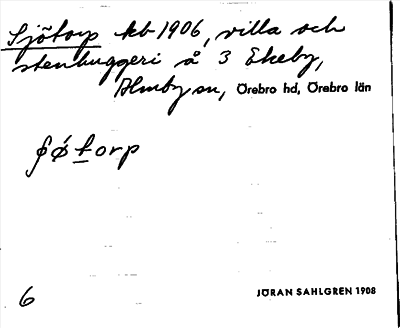 Sjötorp kb 1906, villa och
stenhuggeri å 3 Ekeby,
Almby sn, Örebro hd, Örebro län
ʃøtorp
6
JÖRAN SAHLGREN 1908